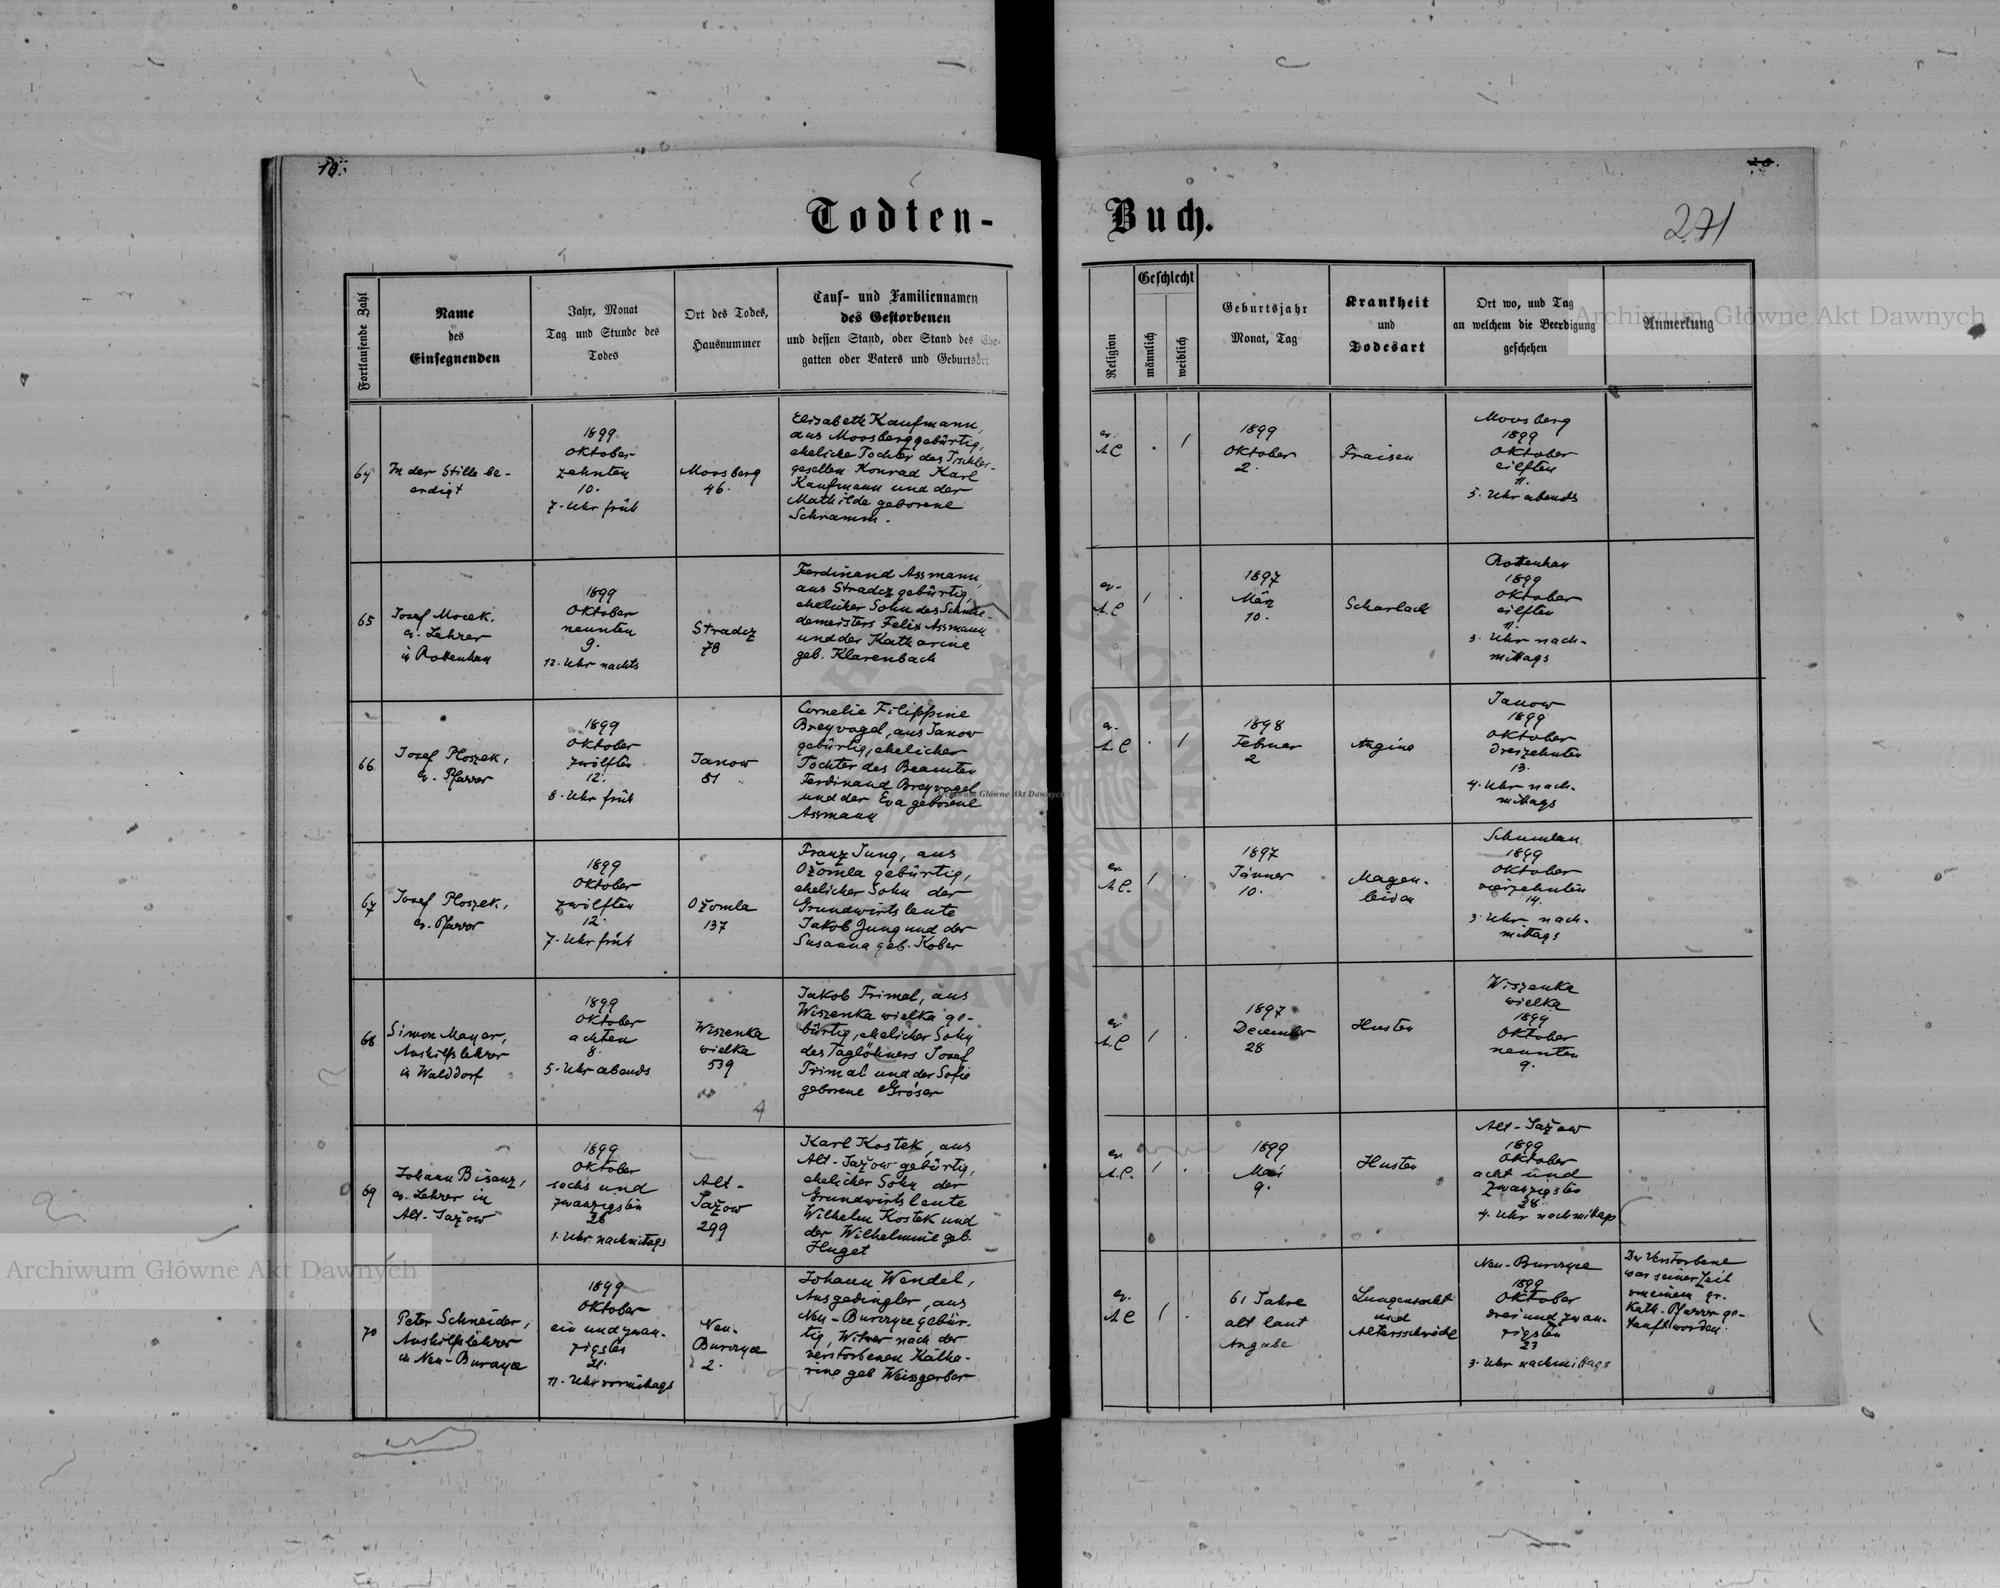 271
Todten-Buch.
Fortlaufende Zahl
Name
des
Einsegnenden
Jahr, Monat
Tag und Stunde des
Todes
Ort des Todes,
Hausnummer
Tauf- und Familiennamen
des Gestorbenen
und dessen Stand, oder Stand des Ehe-
gatten oder Vaters und Geburtsort
Religion
Geschlecht
männlich
weiblich
Geburtsjahr
Monat, Tag
Krankheit
und
Todesart
Ort wo, und Tag
an welchem die Beerdigung
geschehen
Anmerkung
64
In der Stille be-
erdigt
1899
Oktober
zehnten
10.
7. Uhr früh
Moosberg
46.
Elisabeth Kaufmann,
aus Moosberg gebürtig,
eheliche Tochter des Tischler-
gesellen Konrad Karl
Kaufmann und der
Mathilde geborene
Schramm.
ev.
A.C
.
1
1899
Oktober
2.
Fraisen
Moosberg
1899
Oktober
eilften
11.
5. Uhr abends
65
Josef Mocek,
ev. Lehrer
in Rottenhan
1899
Oktober
neunten
9.
12. Uhr nachts
Stradcz
78
Ferdinand Assmann,
aus Stradcz gebürtig,
ehelicher Sohn des Schmie-
demeisters Felix Assmann
und der Katharina
geb. Klarenbach
ev.
A.C
1
.
1897
März
10.
Scharlach
Rottenhan
1899
Oktober
eilften
11.
3. Uhr nach-
mittags
66
Josef Ploszek,
ev. Pfarrer
1899
Oktober
zwölften
12.
8. Uhr früh
Janow
81
Cornelie Filippine
Breyvogel, aus Janow
gebürtig, ehelicher
Tochter des Beamten
Ferdinand Breyvogel
und der Eva geborene
Assmann
ev.
A.C
.
1
1898
Februar
2
Angina
Janow
1899
Oktober
dreizehnten
13.
4. Uhr nach-
mittags
67
Josef Ploszek,
ev. Pfarrer
1899
Oktober
zwölften
12.
7. Uhr früh
Ożomla
137
Franz Jung, aus
Ożomla gebürtig,
ehelicher Sohn der
Grundwirtsleute
Jakob Jung und der
Susanna geb. Kober
ev.
A.C.
1
.
1897
Jänner
10.
Magen-
leiden
Schumlau
1899
Oktober
vierzehnten
14.
3. Uhr nach-
mittags
68
Simon Mayer,
Aushilfslehrer
in Walddorf
1899
Oktober
achten
8.
5. Uhr abends
Wiszenka
wielka
539
Jakob Trimal, aus
Wiszenka wielka ge-
bürtig, ehelicher Sohn
des Taglöhners Josef
Trimal und der Sofie
geborene Gröser
ev
A.C
1
.
1897
December
28
Husten
Wiszenka
wielka
1899
Oktober
neunten
9.
69
Johann Bisanz,
ev. Lehrer in
Alt-Jażow
1899
Oktober
sechs und
zwanzigsten
26
1. Uhr nachmittags
Alt-
Jażow
299
Karl Kostek, aus
Alt-Jażow gebürtig,
ehelicher Sohn der
Grundwirtsleute
Wilhelm Kostek und
der Wilhelmine geb.
Huget
ev.
A.C.
1
.
1899
Mai
9.
Husten
Alt-Jażow
1899
Oktober
acht und
zwanzigsten
28.
4. Uhr nachmittags
70
Peter Schneider,
Aushilfslehrer
in Neu-Burczyce
1899
Oktober
ein und zwan-
zigsten
21.
11. Uhr vormittags
Neu-
Burczyce
2.
Johann Wendel,
Ausgedingler, aus
Neu-Burczyce gebür-
tig, Witwer nach der
verstorbenen Katha-
rine geb Weissgerber
ev.
A.C
1
.
61 Jahre
alt laut
Angabe
Lungensucht
und
Altersschwäche
Neu-Burczyce
1899
Oktober
drei und zwan-
zigsten
23
3. Uhr nachmittags
Der Verstorbene
war seiner Zeit
von einem gr.
Kath. Pfarrer ge-
tauft worden.
Archiwum Główne Akt Dawnych
Archiwum Główne Akt Dawnych
Archiwum Główne Akt Dawnych